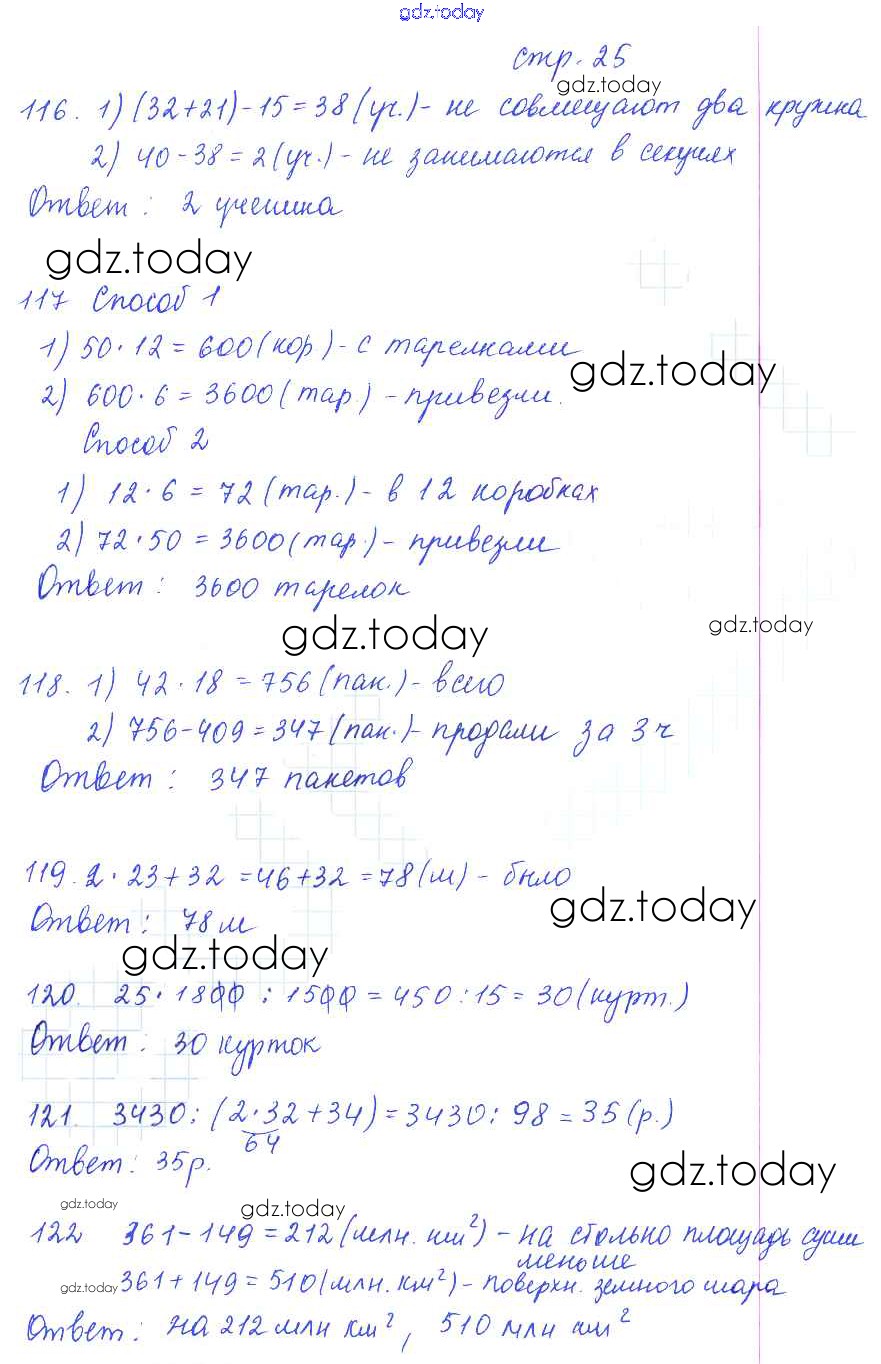 gdz.today
стр. 25
gdz.today
116. 1) (32+21)-15=38(уч.)- не совмещают два кружка
2) 40-38=2(уч.)- не занимаются в секциях
Ответ: 2 ученика
gdz.today
117 Способ 1
1) 50·12=600(кор)- с тарелками
gdz.today
2) 600·6=3600(тар.)-привезли.
Способ 2
1) 12·6=72(тар.)- в 12 коробках
2) 72·50=3600(тар.)-привезли
Ответ: 3600 тарелок
gdz.today
gdz.today
118. 1) 42·18=756(пак.)- всего
2) 756-409=347(пак.)- продали за 3 ч
Ответ: 347 пакетов
119. 2·23+32=46+32=78(м)- было
gdz.today
Ответ: 78 м
gdz.today
120. 25·1800:1500=450:15=30(курт.)
Ответ: 30 курток
121. 3430:(2·32+34)=3430:98=35(р.)
64
Ответ: 35р.
gdz.today
gdz.today
gdz.today
122 361-149=212(млн. км²)- на столько площадь суши
меньше
gdz.today 361+149=510(млн. км²)- поверхн. земного шара
Ответ: на 212 млн км², 510 млн км²